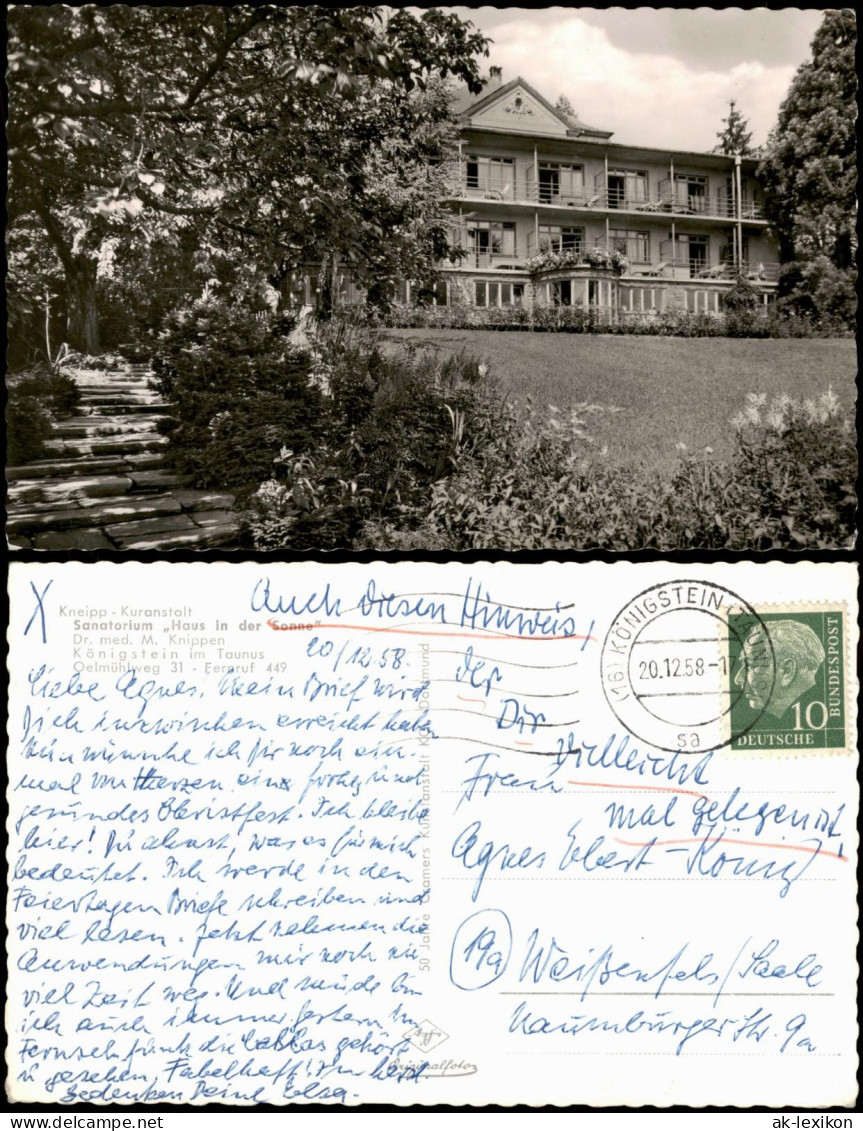 Kneipp - Kuranstalt
Sanatorium „Haus in der Sonne"
Dr. med. M. Knippen
Königstein im Taunus
Oelmühlweg 31 - Fernruf 449
Auch diesen Hinweis,
der
Dir
vielleicht
mal gelegen ist!
20/12.58.
Liebe Agnes! Mein Brief wird
Dich inzwischen erreicht haben
Nun wünsche ich Dir noch ein-
mal von Herzen ein frohes und
gesundes Christfest. Ich bleibe
hier! Du ahnst, was es für mich
bedeutet. Ich werde in den
Feiertagen Briefe schreiben und
viel lesen. Jetzt nehmen die
Anwendungen mir noch
viel Zeit weg. Und müde bin
ich auch immer. gestern im
Fernsehfunk die Callas gehört
u gesehen, Fabelhaft! In
Gedenken Deine Elsa.
50 Jahre Cramers Kunstanstalt KG, Dortmund
Originalfoto
(16) KÖNIGSTEIN (TAUNUS)
20.12.58-17
sa
DEUTSCHE
BUNDESPOST
10
Frau
Agnes Ebert-König
19a
Weißenfels/Saale
Naumburger Str. 9a
© ak-lexikon